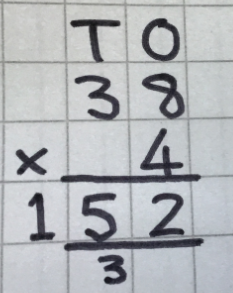 T O
3 8
× 4
1 5 2
3